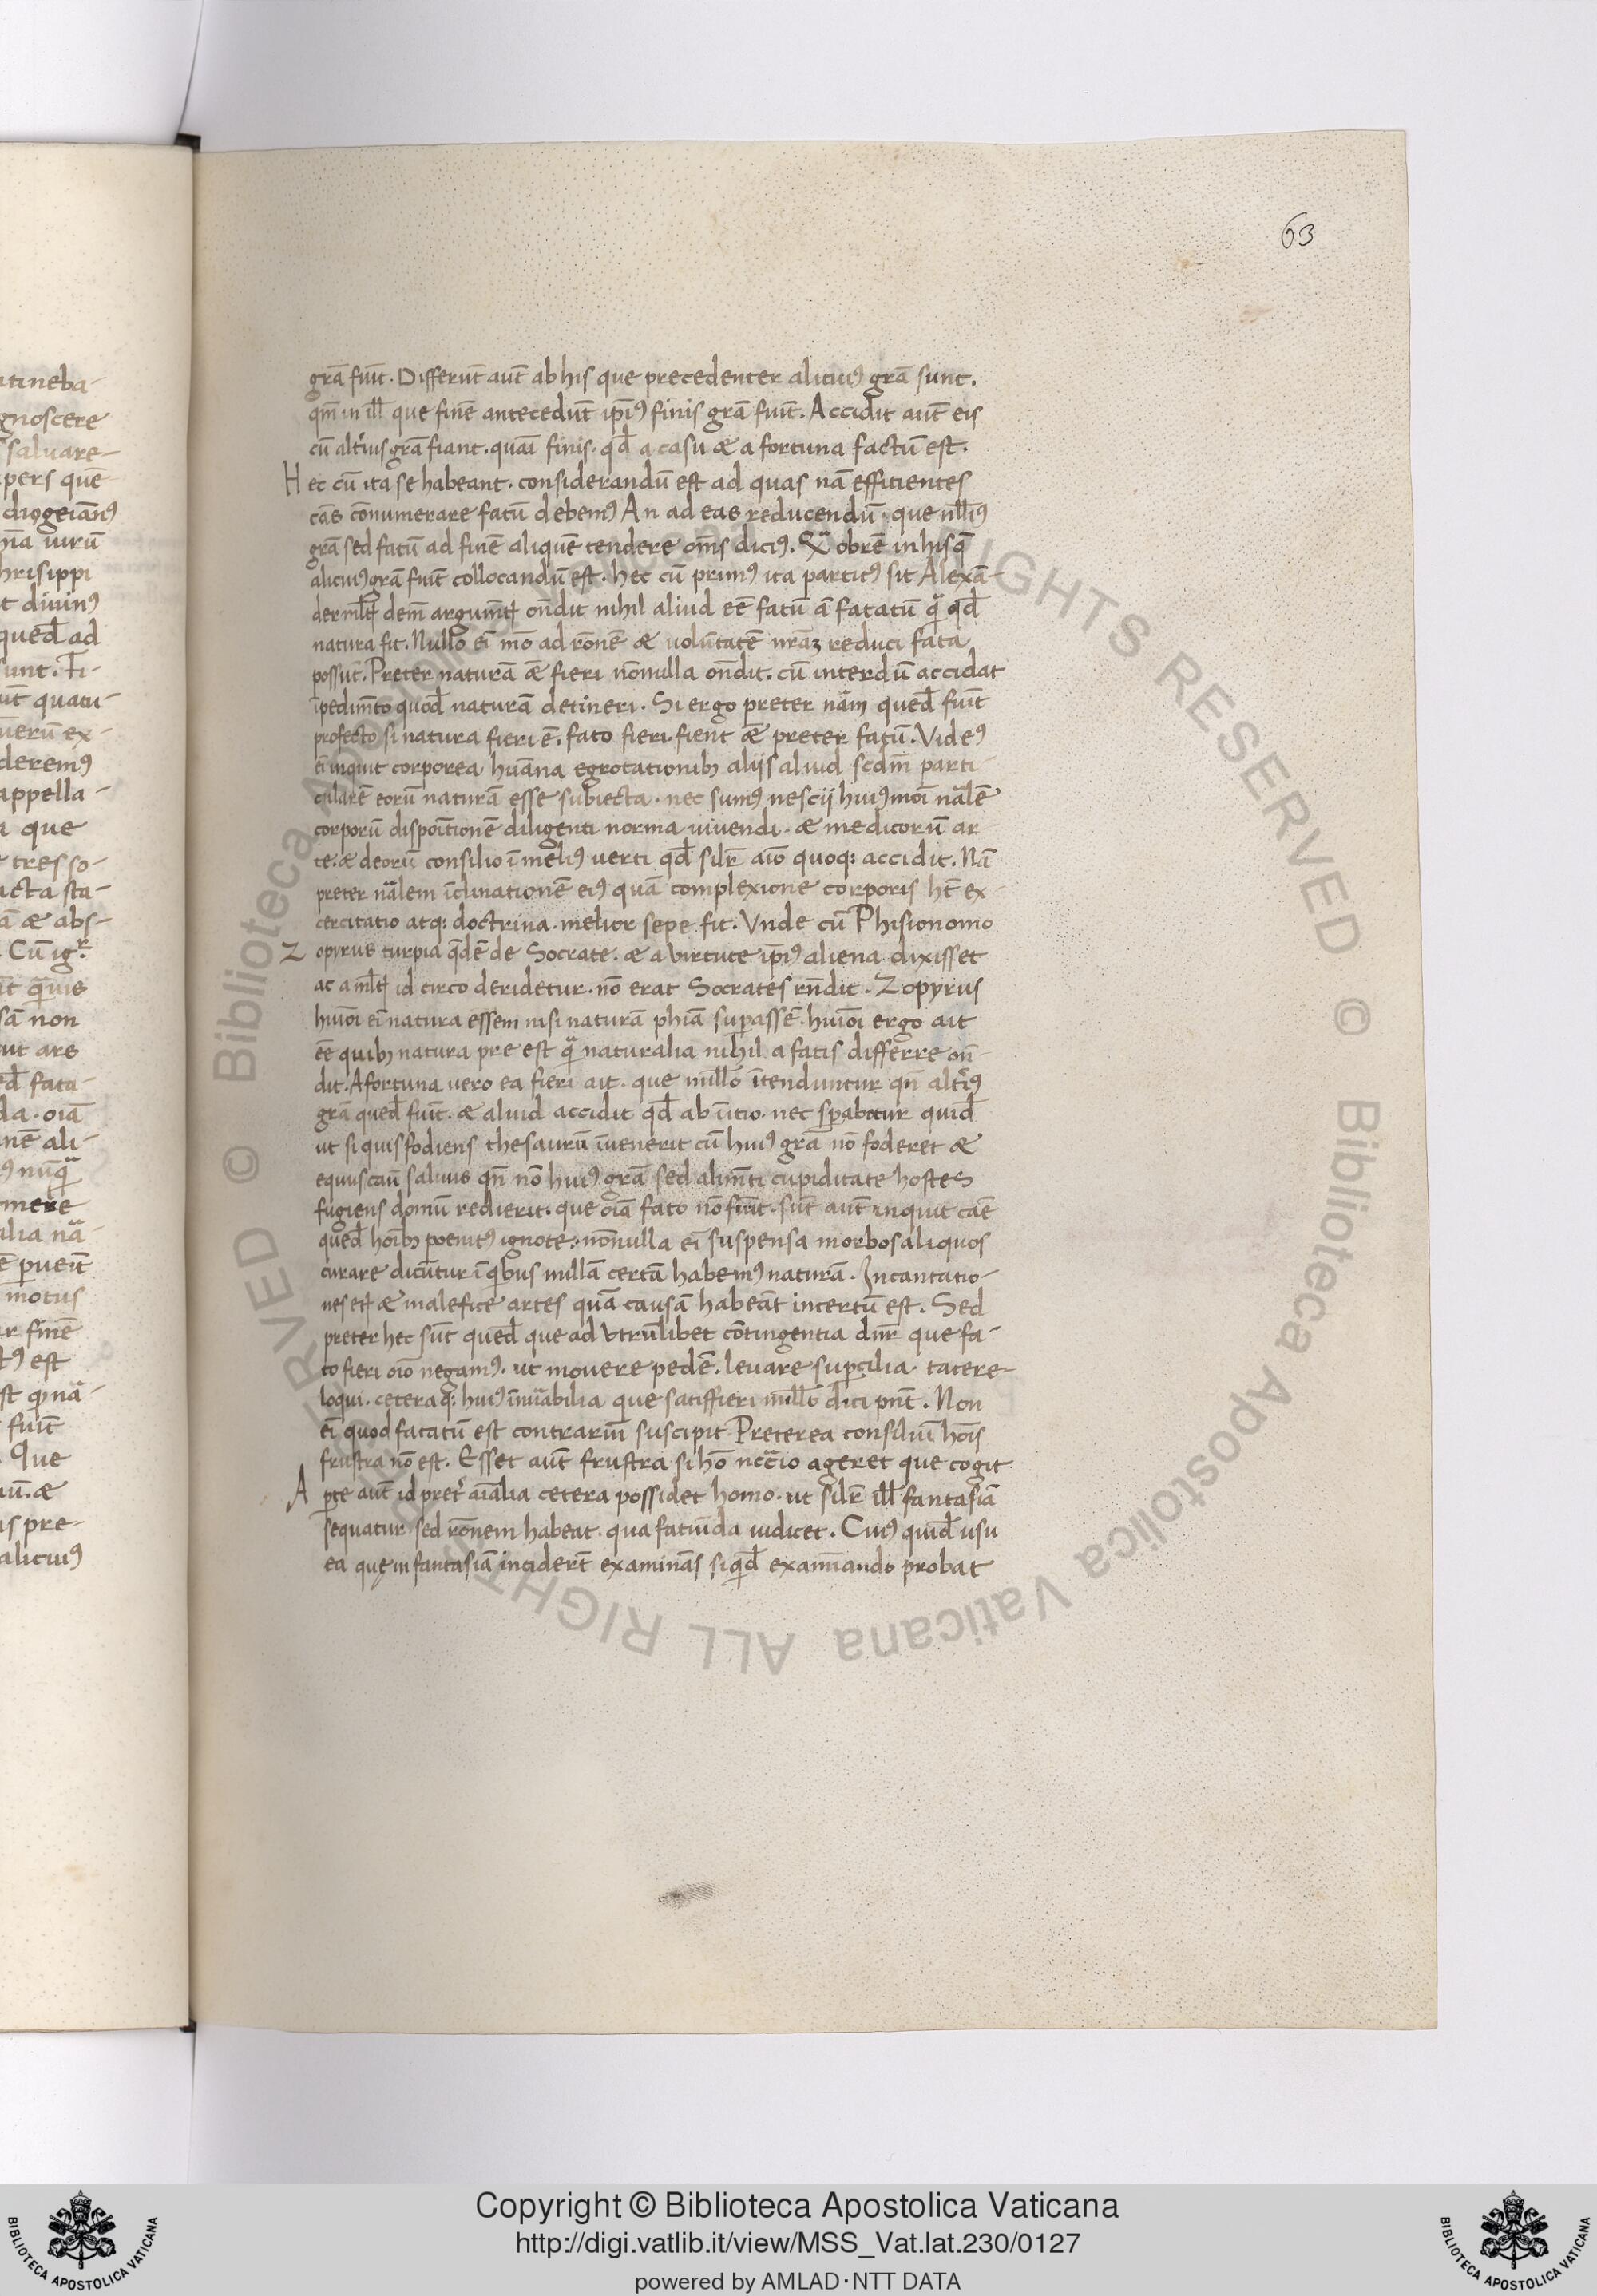 63
grā fuīt. Differūt aūt ab his que precedenter alicuiꝰ grā sunt.
qm̄ in ill̄ que finē antecedūt ip̄iꝰ finis grā fuīt. Accidit aūt eis
cū altīus grā fiant. quaī finis. qd̄ a casu ⁊ a fortuna factū est.
Hec cū ita se habeant. considerandū est ad quas nā effitientes
cās cōnumerare fatū debemꝰ An ad eas reducendū. que nll̄iꝰ
grā sed fatū ad finē aliquē tendere om̄s dicūt. Qā obrē in hisq̄
alicuiꝰ grā fuīt collocandū est. hec cū primꝰ ita partitꝰ sit Alexā-
der ml̄tꝭ dem̄ argum̄tꝭ ōndit nihil aliud eē fatū ā fatatū q̄ qd̄
natura fit. Nullo eī mō ad rōnē ⁊ uolūtatē nr̄aꝫ reduci fata
possūt. Preter naturā āē fieri nōnulla ōndit. cū interdū accidat
īpedim̄to quod̄ naturā detineri. Si ergo preter nām qued̄ fuīt
profecto si natura fieri ē. fato fieri. fient āē preter fatū. Videꝰ
eī inquit corporea humāna egrotationibꝫ alijs aliud scdm̄ parti-
cularē eorū naturā esse subiecta. nec sumꝰ nescij huiꝰmoī nālē
corporū dispoitionē diligenti norma uiuendi. ⁊ medicorū ar
te ⁊ deorū consilio ī meliꝰ uerti qd̄ silr̄ aīo quoqꝫ accidit. Nā
preter nālem īclinationē eiꝰ quā complexione corporis ht̄ ex-
cercitatio atqꝫ doctrina. melior sepe fit. Vnde cū Phisionomo
Zopirus turpia q̄dē de Socrate. ⁊ a uirtute ip̄iꝰ aliena dixisset
ac a ml̄tꝭ id circo deridetur. nō erat Socrates rn̄dit. Zopyrus
huiōi eī natura essem nisi naturā ph̄iā superassē. huiōi ergo ait
eē quibꝫ natura pre est q̄ naturalia nihil a fatis differre on-
dit. A fortuna uero ea fieri ait. que nullō ītenduntur qn̄ altīꝰ
grā qued̄ fuīt. ⁊ aliud accidit qd̄ ab ītio. nec sperabatur quid̄
ut si quis fodiens thesaurū īuenerit cū huiꝰ grā nō foderet ⁊
equus saluus qn̄ nō huiꝰ grā sed alim̄ti cupiditate hostes
fugiens domū redierit. que oīā fato nō fiūt. sūt aūt inquit caē
qued̄ hoībꝫ poenitꝰ ignote. nōnulla eī suspensa morbos aliquos
curare dicūtur ī qībus nullā certā habemꝰ naturā. Incantatio-
nes etꝭ ⁊ malefice artes quā causā habeāt incertū est. Sed
preter hec sūt qued̄ que ad utrūlibet cōtingentia dnr̄ que fa-
to fieri oīo negamꝰ. ut mouere pedē. leuare supercilia. tacere-
loqui. cetera qꝫ huiꝰ īnūabilia que satis fieri nullō dici pn̄t. Non
eī quod fatatū est contrariū suscipit Preterea consiliū hoīs
frustra nō est. Esset aūt frustra si hō nccīo ageret que cogit
Apte aūt id pret̄ aīalia cetera possidet homo. ut silr̄ ill̄ fantasiā
sequatur sed rōnem habeat. qua faciūda iudicet. Cuiꝰ quid̄ usu
ea que in fantasiā inciderīt examinās si qd̄ examīando probat
Copyright © Biblioteca Apostolica Vaticana
http://digi.vatlib.it/view/MSS_Vat.lat.230/0127
powered by AMLAD·NTT DATA